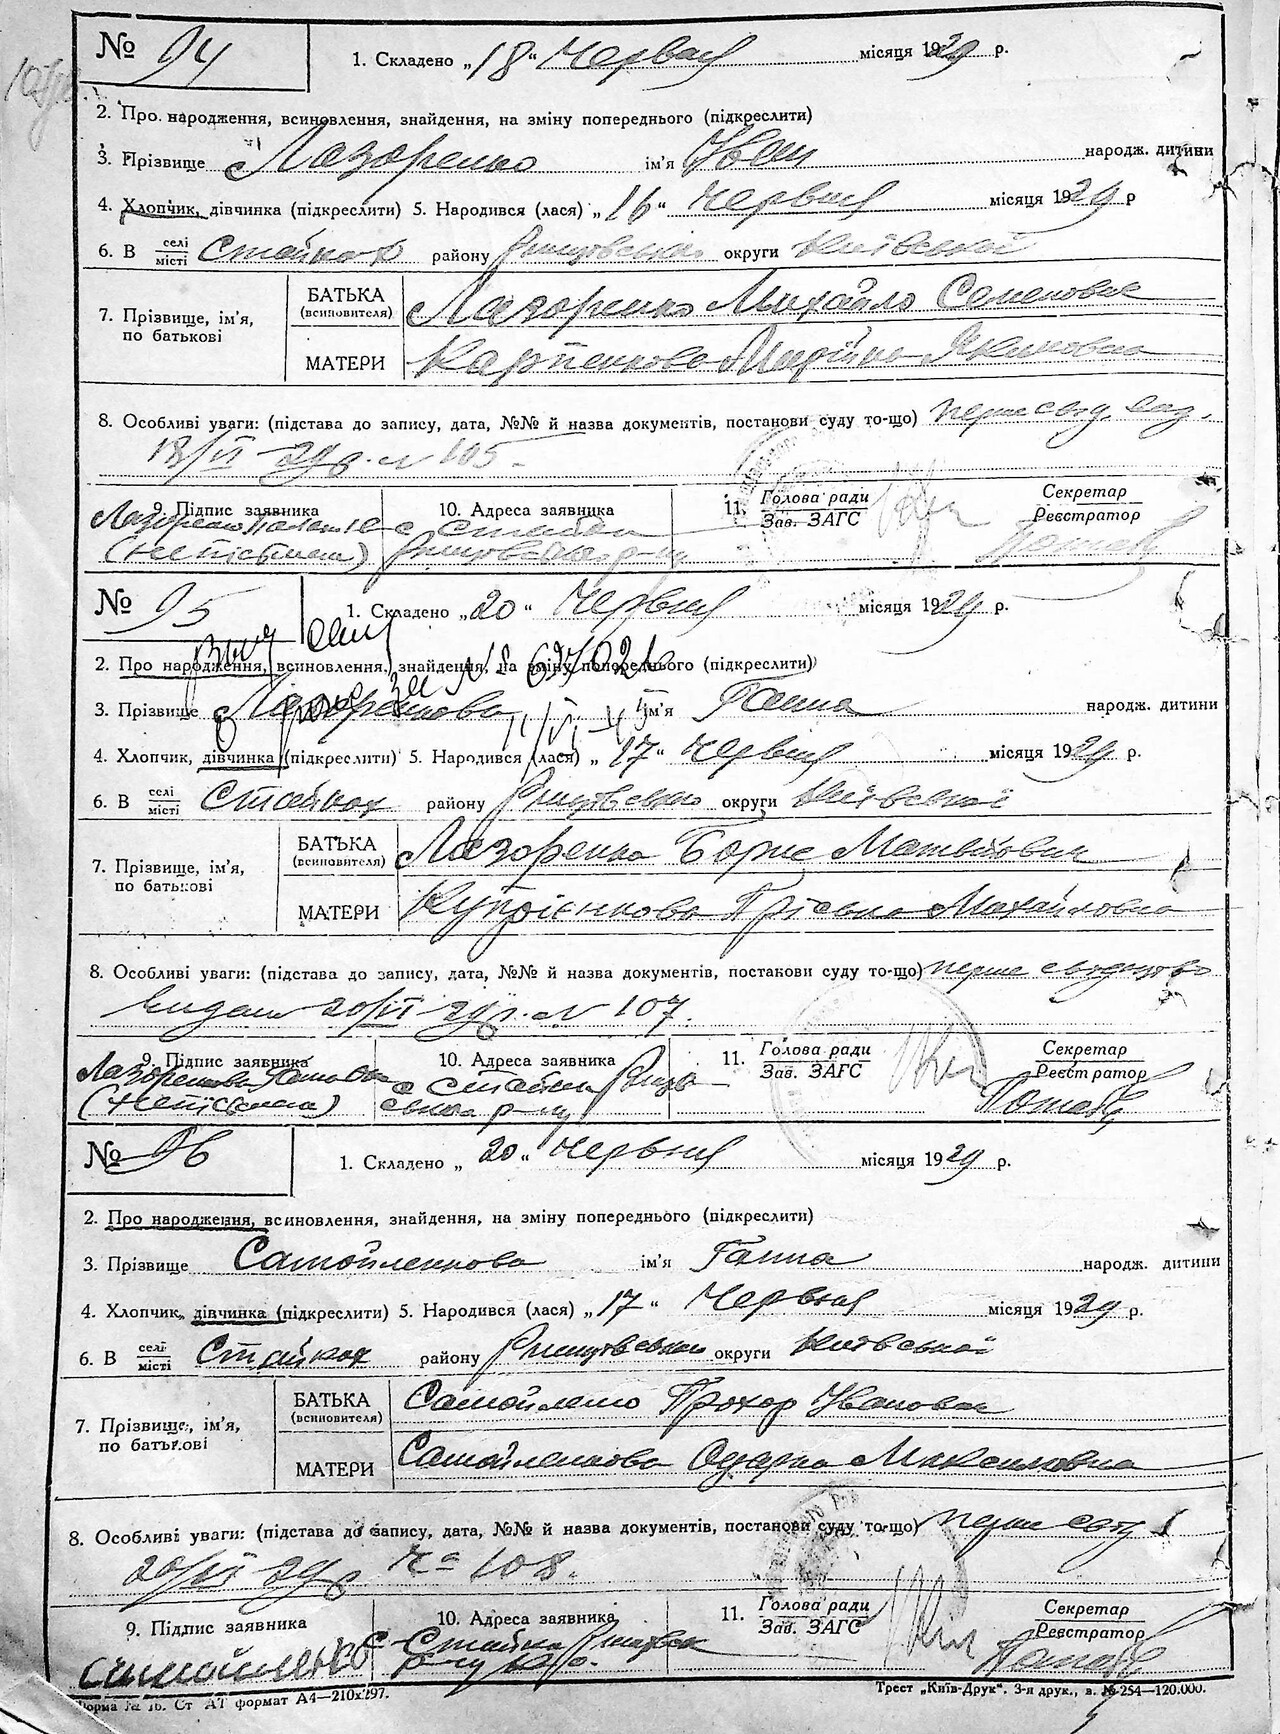 № 94
1. Складено „18“ Червня місяця 1929 р.
2. Про народження, всиновлення, знайдення, на зміну попереднього (підкреслити)
3. Прізвище Лазоренко ім'я Іван народж. дитини
4. Хлопчик, дівчинка (підкреслити) 5. Народився (лася) „16“ Червня місяця 1929 р
6. В селі місті Стайках району Ржищівського округи Київської
7. Прізвище, ім'я, по батькові
БАТЬКА (всиновителя) Лазоренко Михайло Семенович
МАТЕРИ Карпенкова Марійка Якимовна
8. Особливі уваги: (підстава до запису, дата, №№ й назва документів, постанови суду то-що) перше
18/VI 29 р. № 105.
9. Підпис заявника 10. Адреса заявника 11. Голова ради Зав. ЗАГС Секретар Реєстратор
Лазоренко с Стайки
(Неписьмена) р-ну
№ 95
1. Складено „20“ Червня місяця 1929 р.
2. Про народження, всиновлення, знайдення, на зміну попереднього (підкреслити)
3. Прізвище Лазоренкова ім'я Ганна народж. дитини
4. Хлопчик, дівчинка (підкреслити) 5. Народився (лася) „17“ Червня місяця 1929 р.
6. В селі місті Стайках району Ржищівського округи Київської
7. Прізвище, ім'я, по батькові
БАТЬКА (всиновителя) Лазоренко Борис Матвійович
МАТЕРИ Купрієнкова Пріська Михайловна
8. Особливі уваги: (підстава до запису, дата, №№ й назва документів, постанови суду то-що) перше свідоцтво
видано 20/VI 29 р. № 107.
9. Підпис заявника 10. Адреса заявника 11. Голова ради Зав. ЗАГС Секретар Реєстратор
Лазоренкова с Стайки
(Неписьмена) р-ну
№ 96
1. Складено „20“ Червня місяця 1929 р.
2. Про народження, всиновлення, знайдення, на зміну попереднього (підкреслити)
3. Прізвище Самойленкова ім'я Ганна народж. дитини
4. Хлопчик, дівчинка (підкреслити) 5. Народився (лася) „17“ Червня місяця 1929 р.
6. В селі місті Стайках району Ржищівського округи Київської
7. Прізвище, ім'я, по батькові
БАТЬКА (всиновителя) Самойленко Прохор Іванович
МАТЕРИ Самойленкова Одарка Максимовна
8. Особливі уваги: (підстава до запису, дата, №№ й назва документів, постанови суду то-що) перше
20/VI 29 р № 108.
9. Підпис заявника 10. Адреса заявника 11. Голова ради Зав. ЗАГС Секретар Реєстратор
Самойленко с Стайки
р-ну
Форма № 1б. Ст АТ формат А4—210х297. Трест „Київ-Друк“. 3-я друк., в. № 254—120.000.